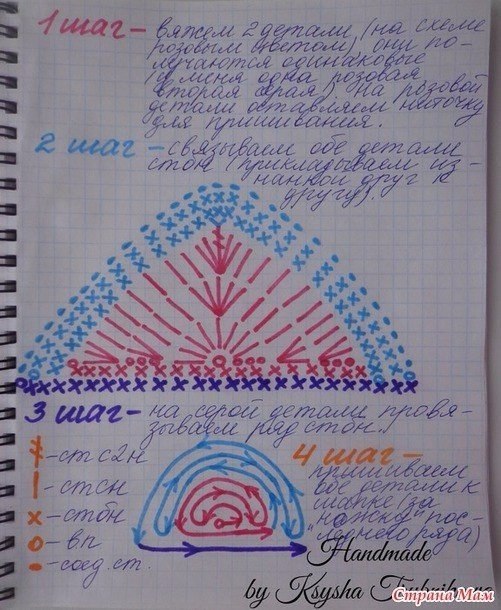 1 шаг – вяжем 2 детали (на схеме
розовым цветом), они по-
лучаются одинаковые
(у меня одна розовая
вторая серая) на розовой
детали оставляем ниточку
для пришивания.
2 шаг – связываем обе детали
стбн (прикладываем из-
нанкой друг к
другу).
3 шаг – на серой детали провя-
зываем ряд стбн.
- ст с2н
- стсн
- стбн
- вп
- соед. ст.
4 шаг –
пришиваем
обе детали к
шапке (за
"ножку" пос-
леднего ряда)
Handmade
by Ksysha
Страна Мам